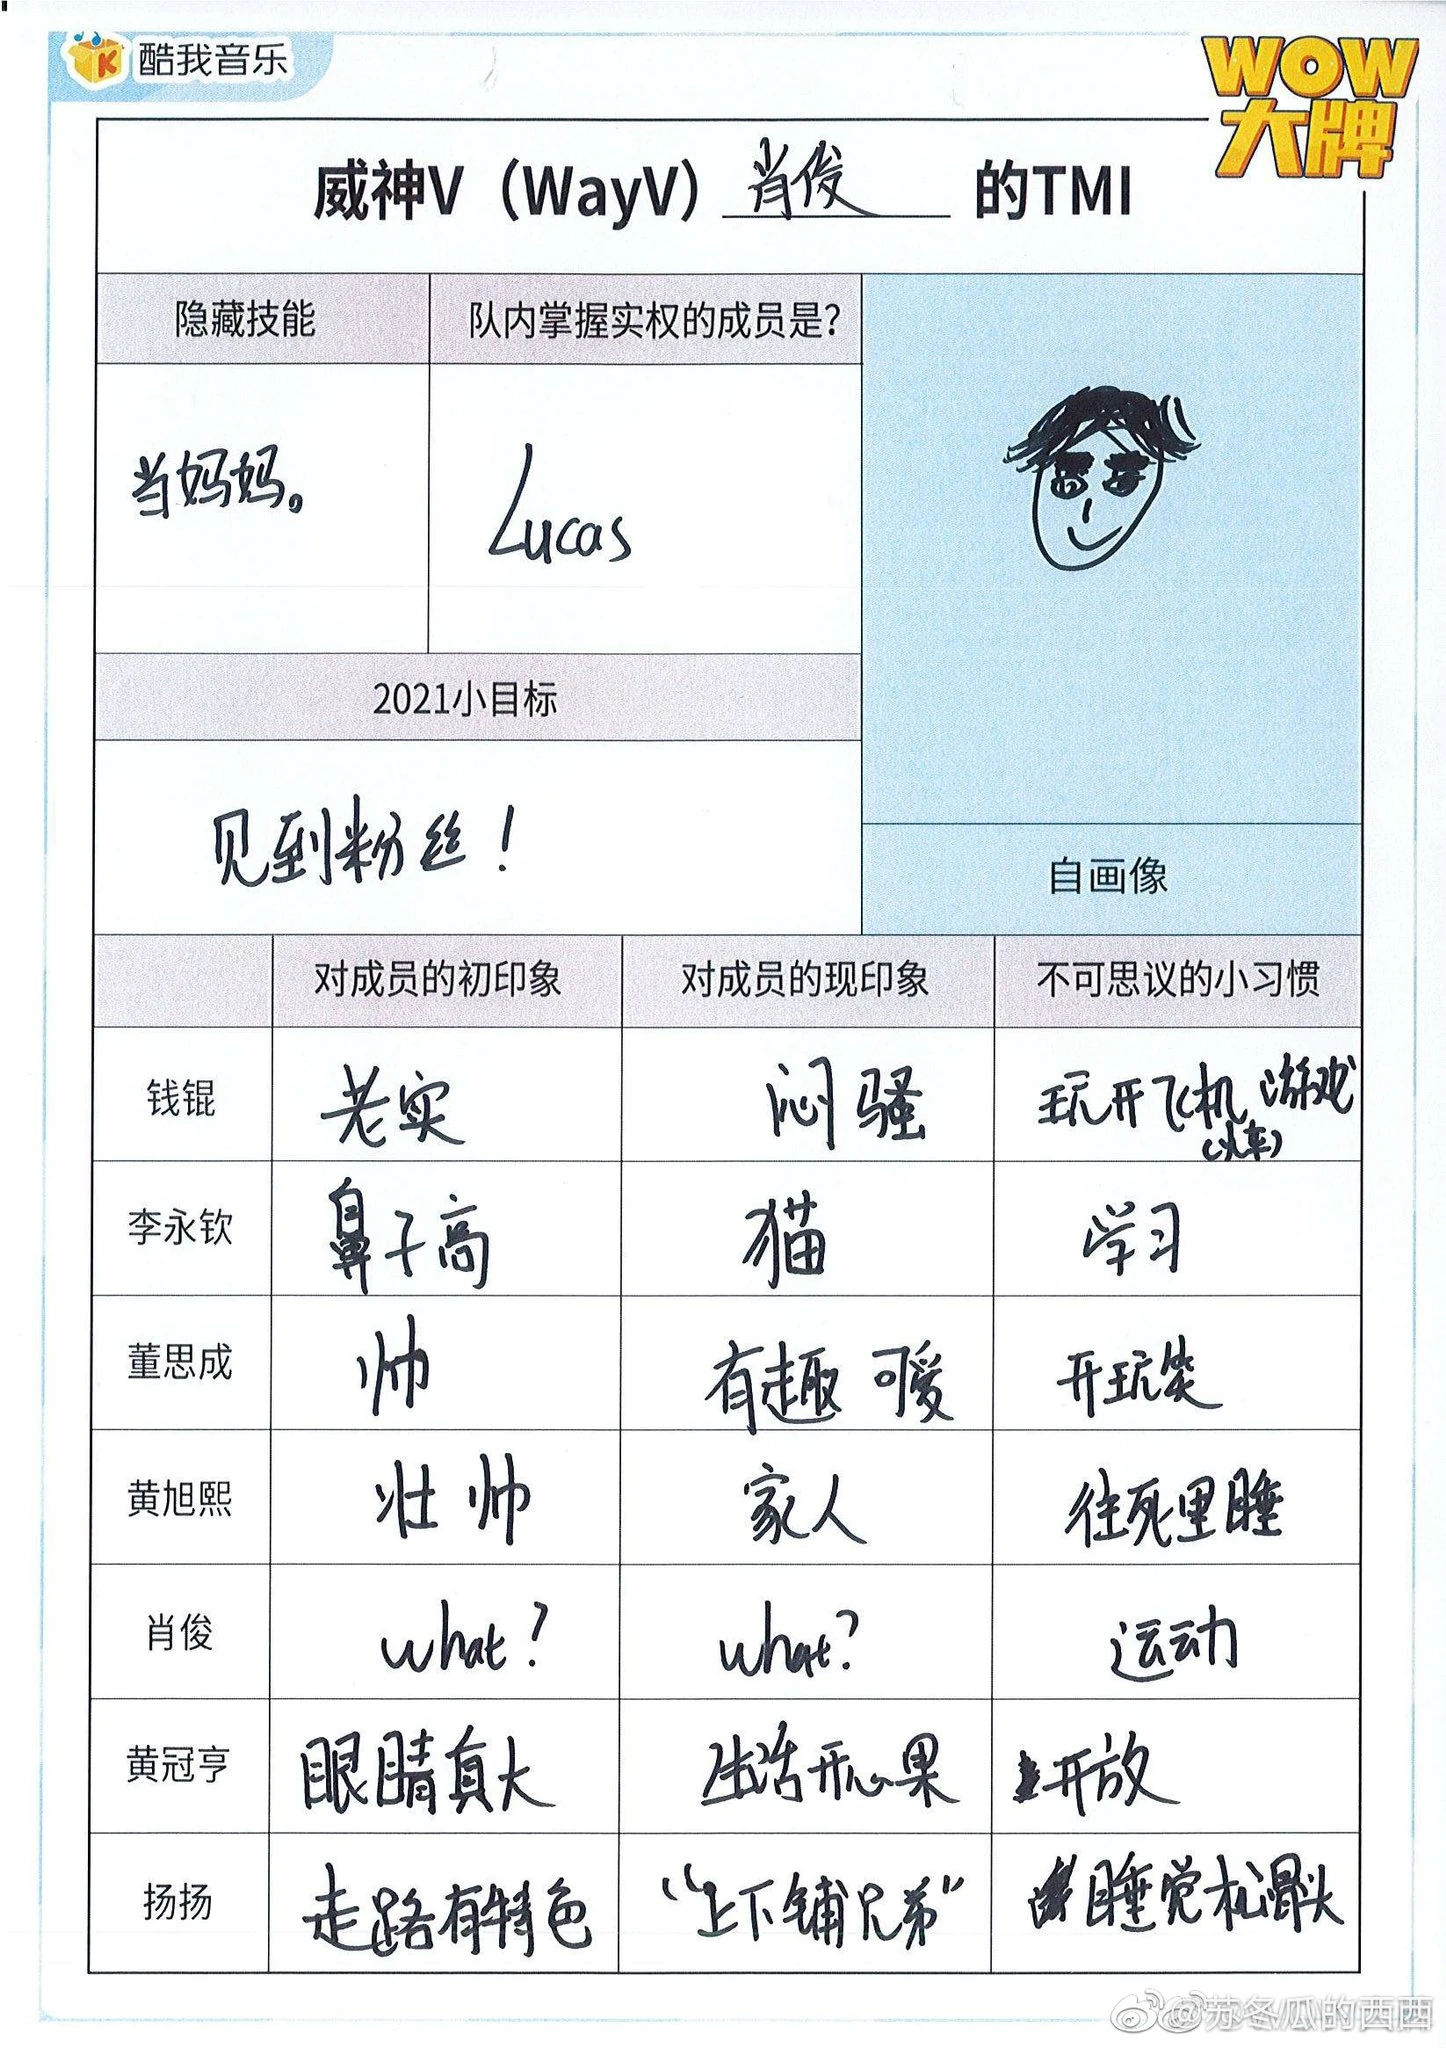 酷我音乐
WOW
大牌
威神V（WayV）肖俊 的TMI
隐藏技能
队内掌握实权的成员是？
当妈妈。
Lucas
2021小目标
见到粉丝！
自画像
对成员的初印象 对成员的现印象 不可思议的小习惯
钱锟 老实 闷骚 玩开飞机游戏
(火车)
李永钦 鼻子高 猫 学习
董思成 帅 有趣 可爱 开玩笑
黄旭熙 壮 帅 家人 往死里睡
肖俊 what? what? 运动
黄冠亨 眼睛真大 生活开心果 开放
扬扬 走路有特色 “上下铺兄弟” 睡觉松骨头
@苏冬瓜的西西